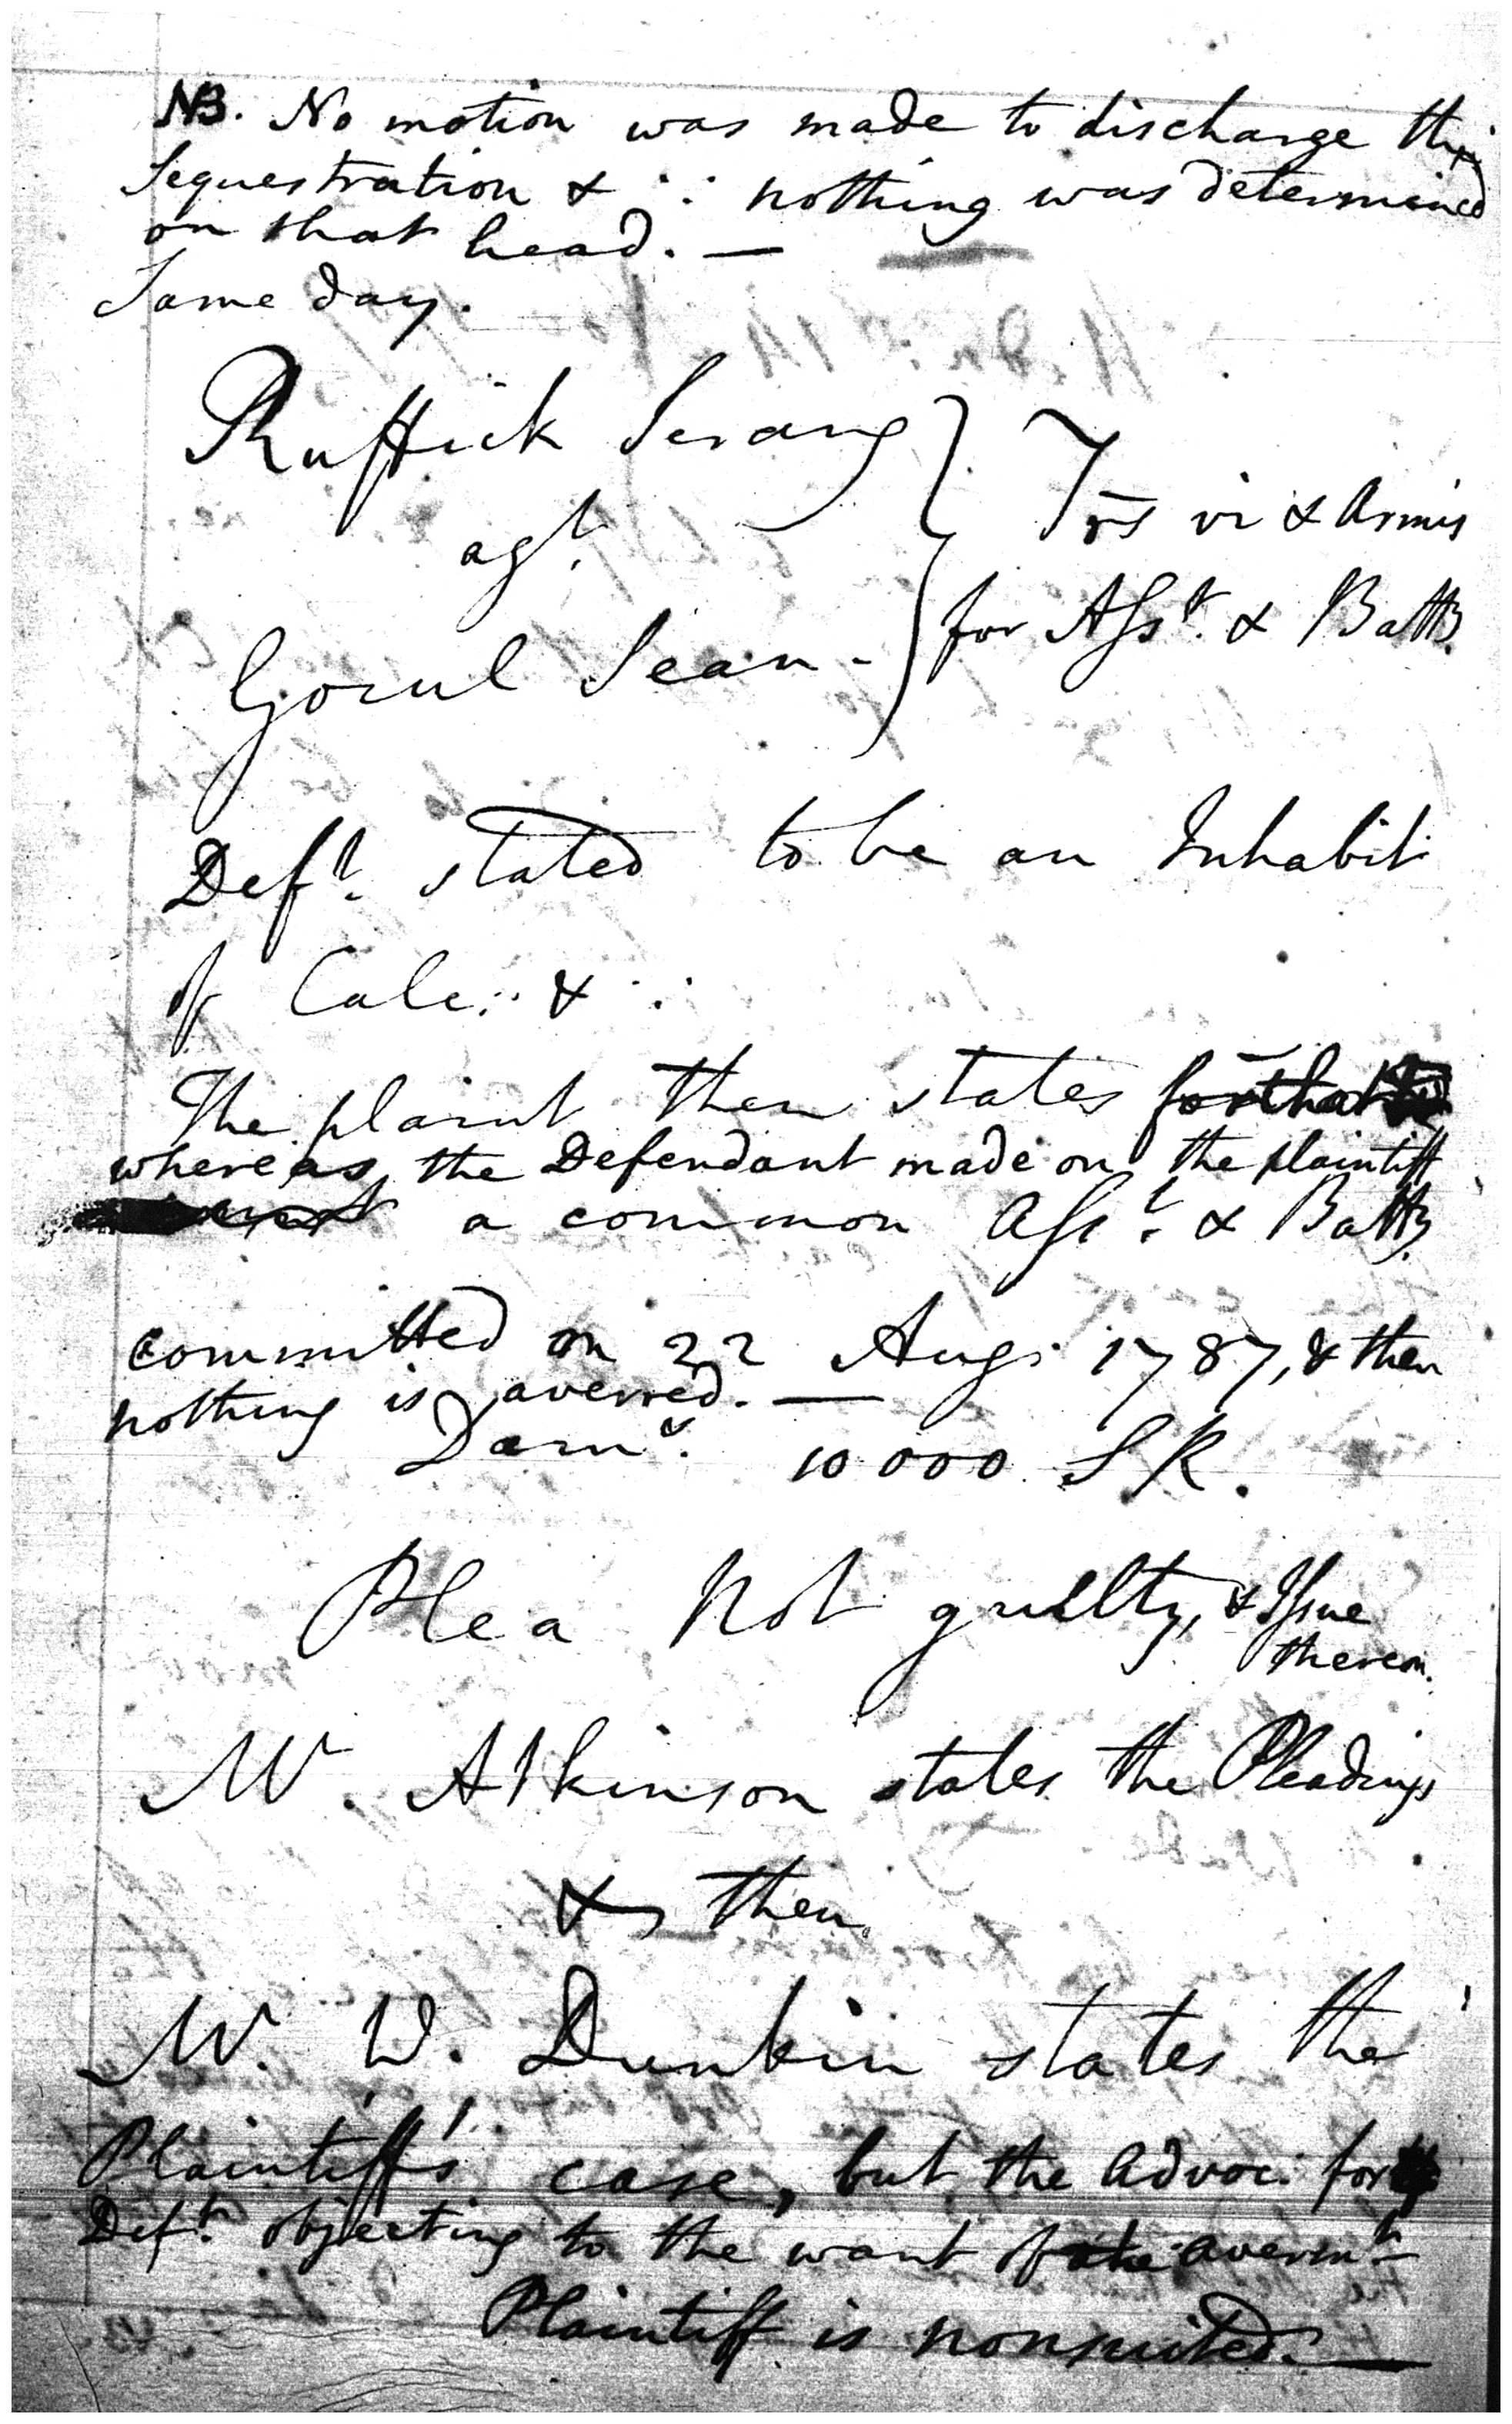 NB. No motion was made to discharge this
Sequestration & ∴ nothing was determined
on that head. —
Same day.
Ruffick Serang
agt.
Gocul Sean -
Trs vi & Armis
for Asst. & Batty.
Deft. stated to be an Inhabit
of Calc: & ∴
The plaint then states for that
whereas the Defendant made on the plaintiff
a common Asst. & Batty.
committed on 22 Aug. 1787, & then
nothing is averred. —
Dams. 10 000 S R.
Plea Not guilty, & Issue
thereon.
Mr. Atkinson states the Pleadings
& then
Mr. W. Dunkin states the
Plaintiff's case, but the Advoc: for
Deft. objecting to the want of avermt
Plaintiff is nonsuited. —